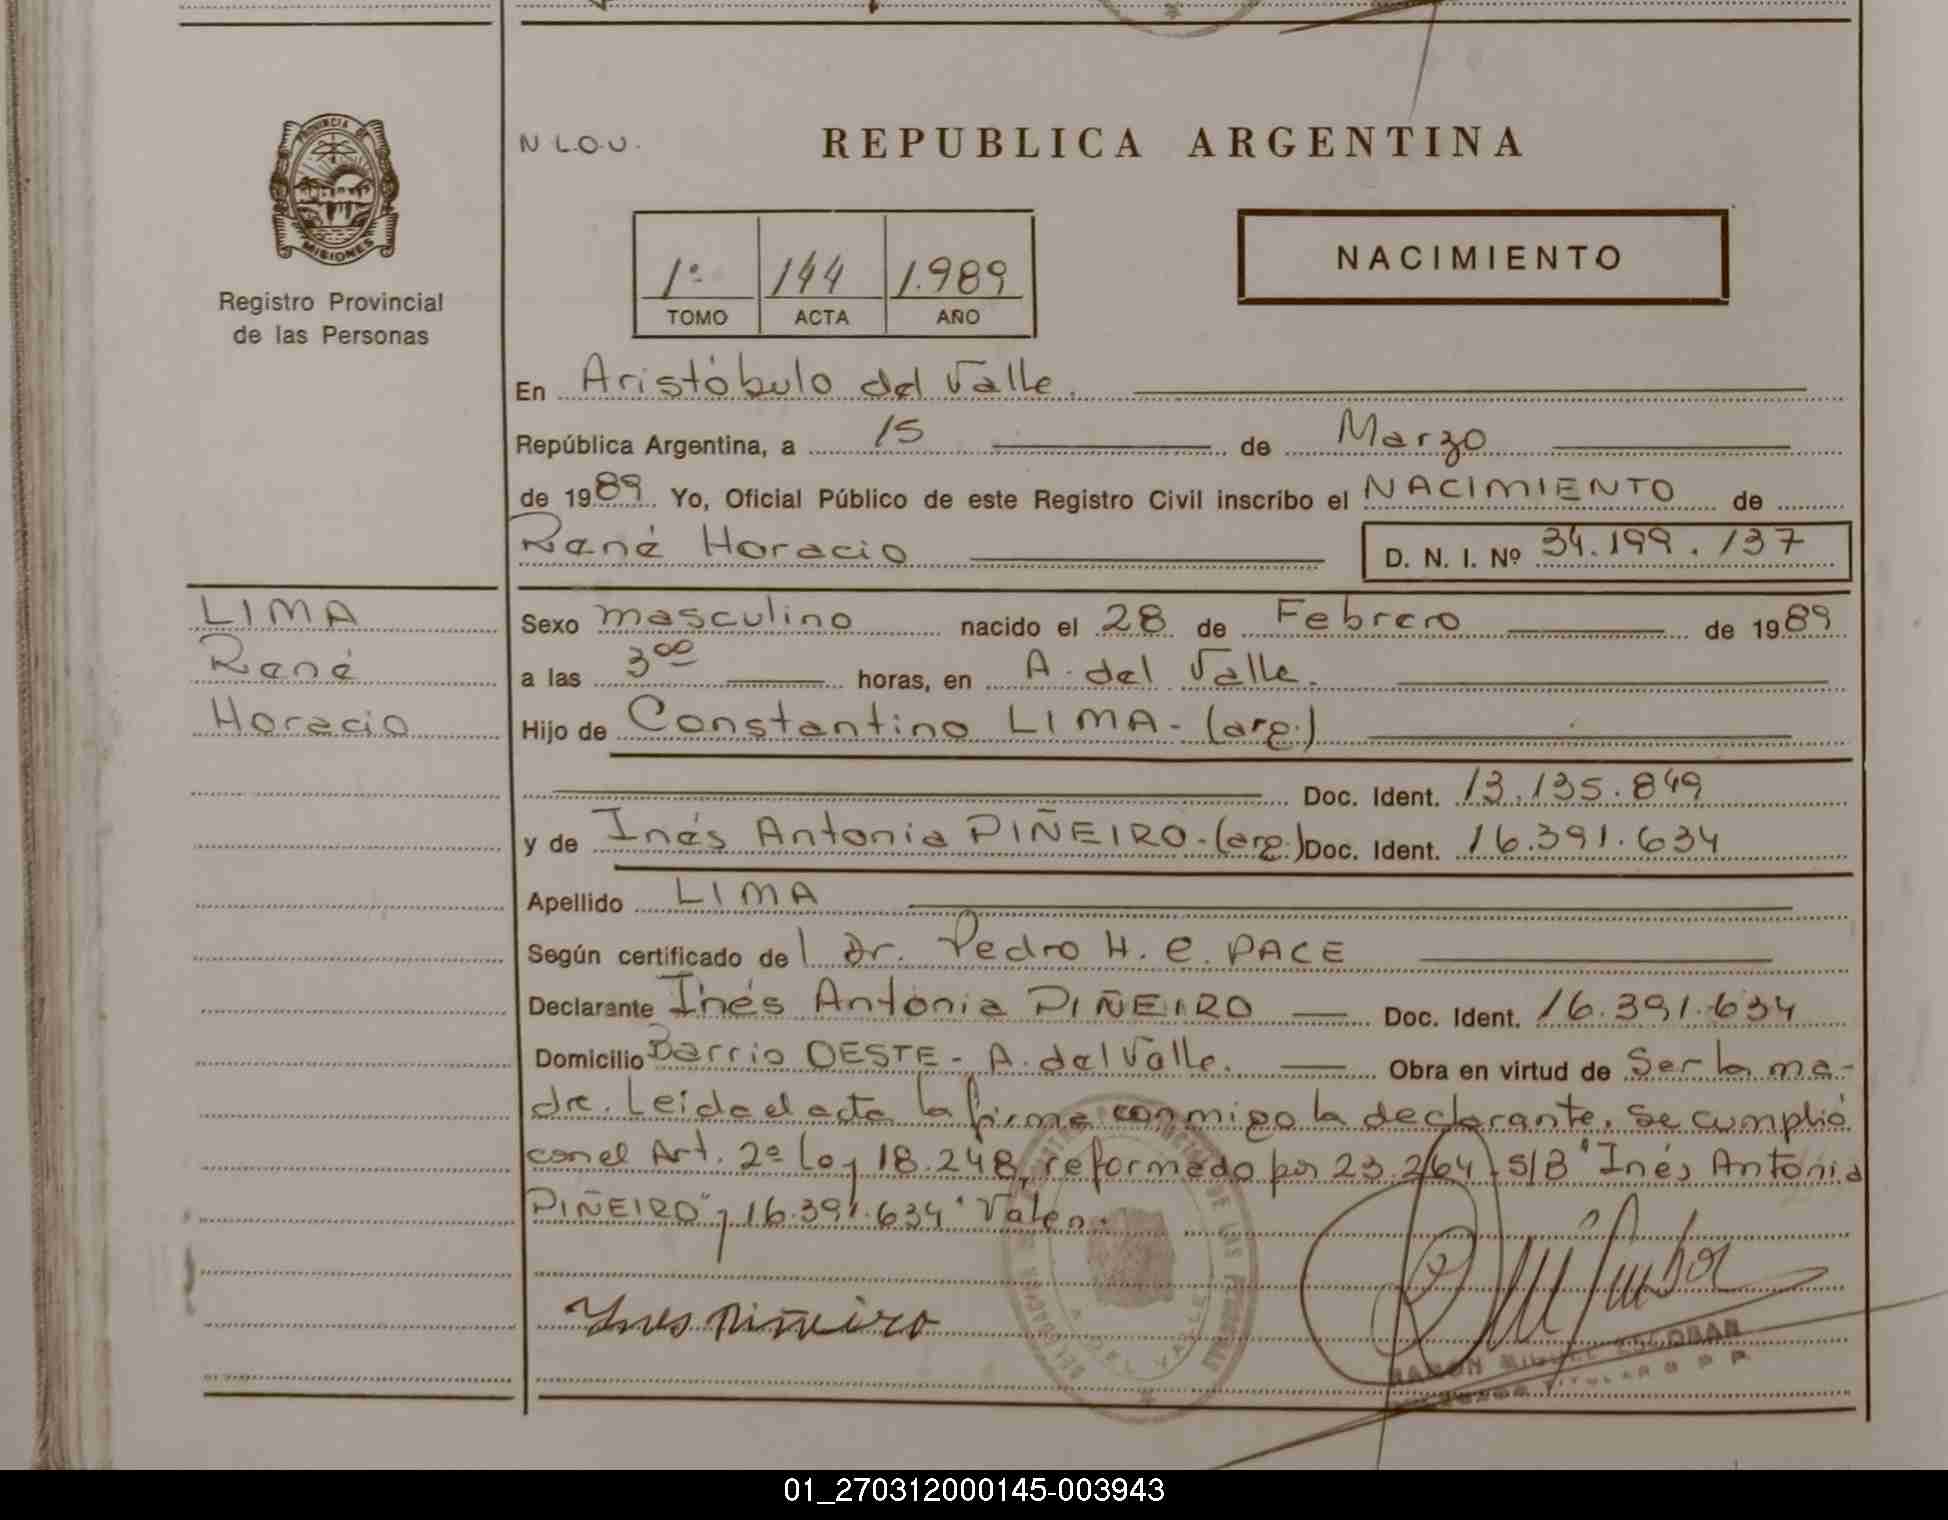 PROVINCIA DE
MISIONES
Registro Provincial
de las Personas
N L.O.U.
REPUBLICA ARGENTINA
1º 144 1.989
TOMO ACTA AÑO
NACIMIENTO
En Aristóbulo del Valle.
República Argentina, a 15 de Marzo
de 1989 Yo, Oficial Público de este Registro Civil inscribo el NACIMIENTO de
René Horacio D. N. I. Nº 34.199.137
LIMA
René
Horacio
Sexo masculino nacido el 28 de Febrero de 1989
a las 3⁰⁰ horas, en A. del Valle.
Hijo de Constantino LIMA - (arg.)
Doc. Ident. 13.135.849
y de Inés Antonia PIÑEIRO - (arg.) Doc. Ident. 16.391.634
Apellido LIMA
Según certificado del Dr. Pedro H. C. PACE
Declarante Inés Antonia PIÑEIRO Doc. Ident. 16.391.634
Domicilio Barrio OESTE - A. del Valle. Obra en virtud de Ser la ma-
dre. Leida el acta la firma conmigo la declarante. Se cumplió
con el Art. 2º Ley 18.248, reformado por 23.264. S/B "Inés Antonia
PIÑEIRO" y 16.391.634" Valen.
Inés Piñeiro
A. DEL VALLE
RAMON MIGUEL ESCOBAR
TITULAR R P P
01_270312000145-003943